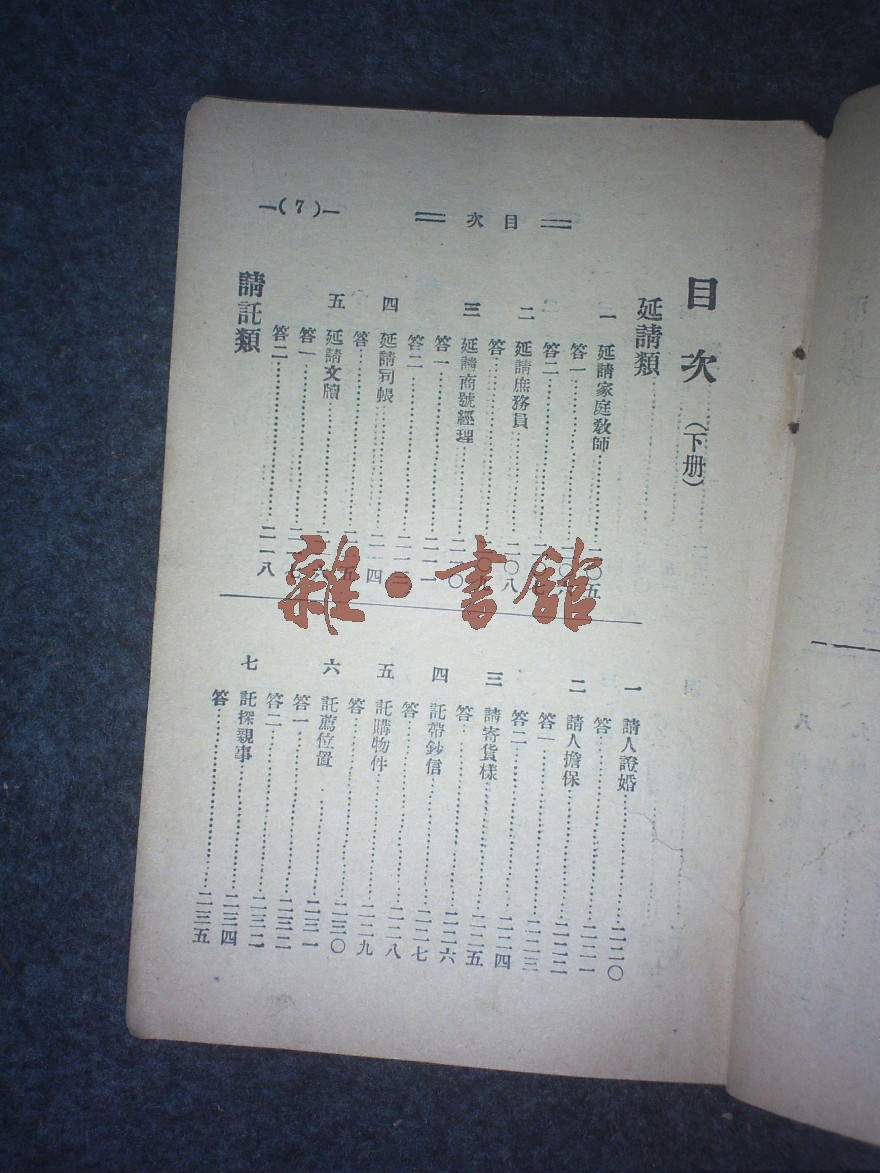 —(7)—
目次
目次（下册）
延請類
一 延請家庭教師……二〇五
答一……二〇六
答二……二〇七
二 延請庶務員……二〇八
答……二〇九
三 延請商號經理……二一〇
答一……二一一
答二……
四 延請司帳……二一四
答……二一五
五 延請文牘……二一六
答一……
答二……二一八
請託類
一 請人證婚……二二〇
答……二二一
二 請人擔保……二二二
答一……二二三
答二……二二四
三 請寄貨樣……二二五
答……二二六
四 託帶鈔信……二二七
答……二二八
五 託購物件……二二九
答……二三〇
六 託薦位置……二三一
答一……二三二
答二……二三三
七 託探親事……二三四
答……二三五
雜·書館